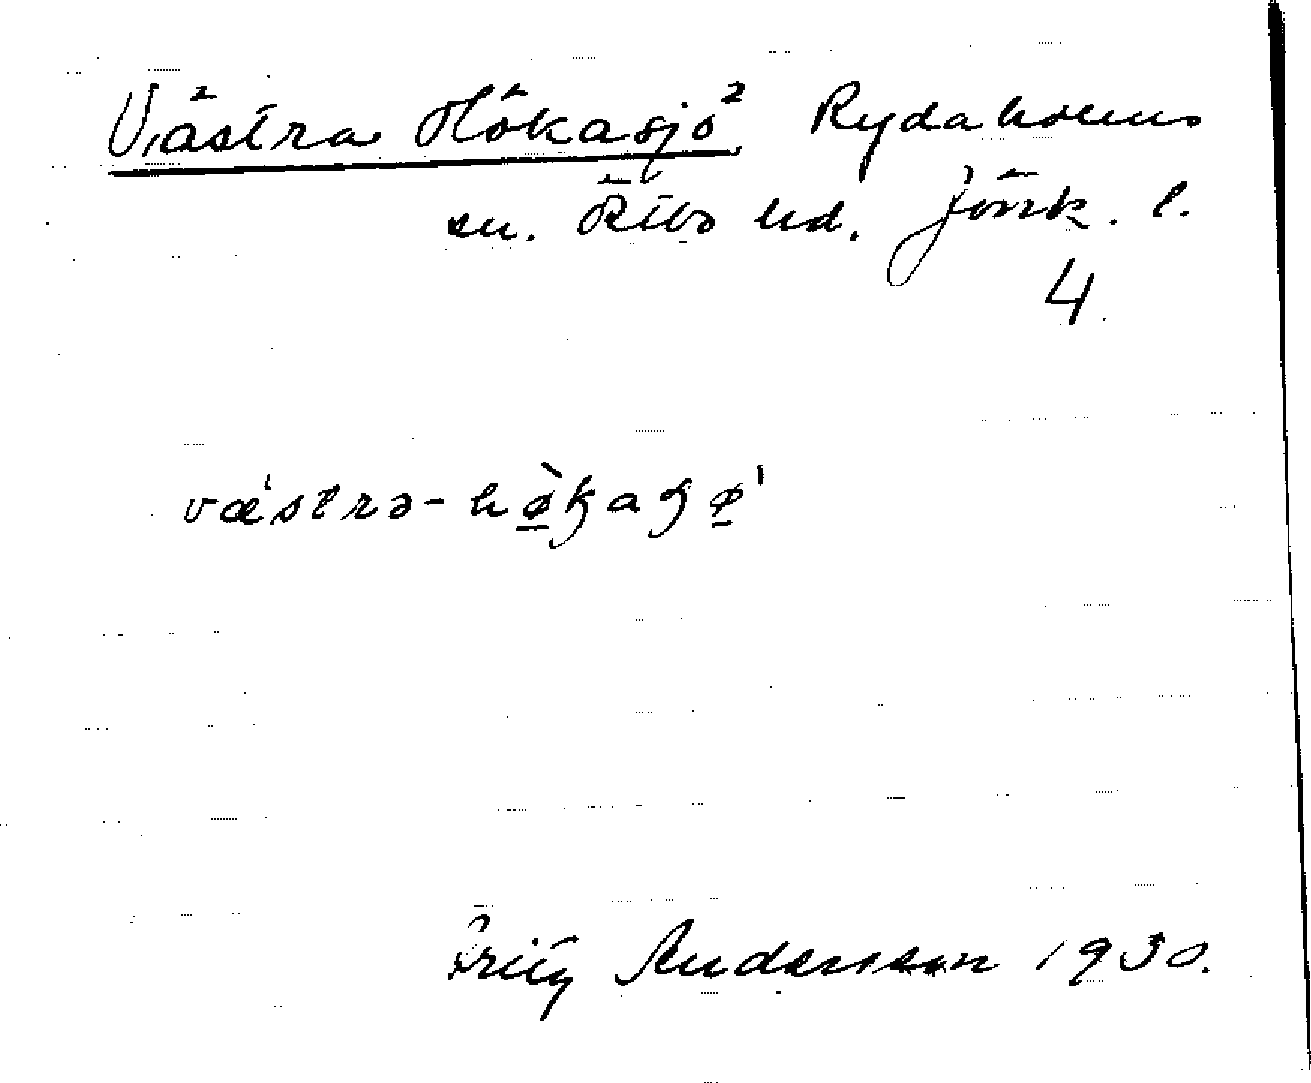 Västra Hökasjö² Rydaholms
sn. Östbo hd. Jönk. l.
4.
væ'strə-hø̀kaʂø'
Fritz Andersson 1930.